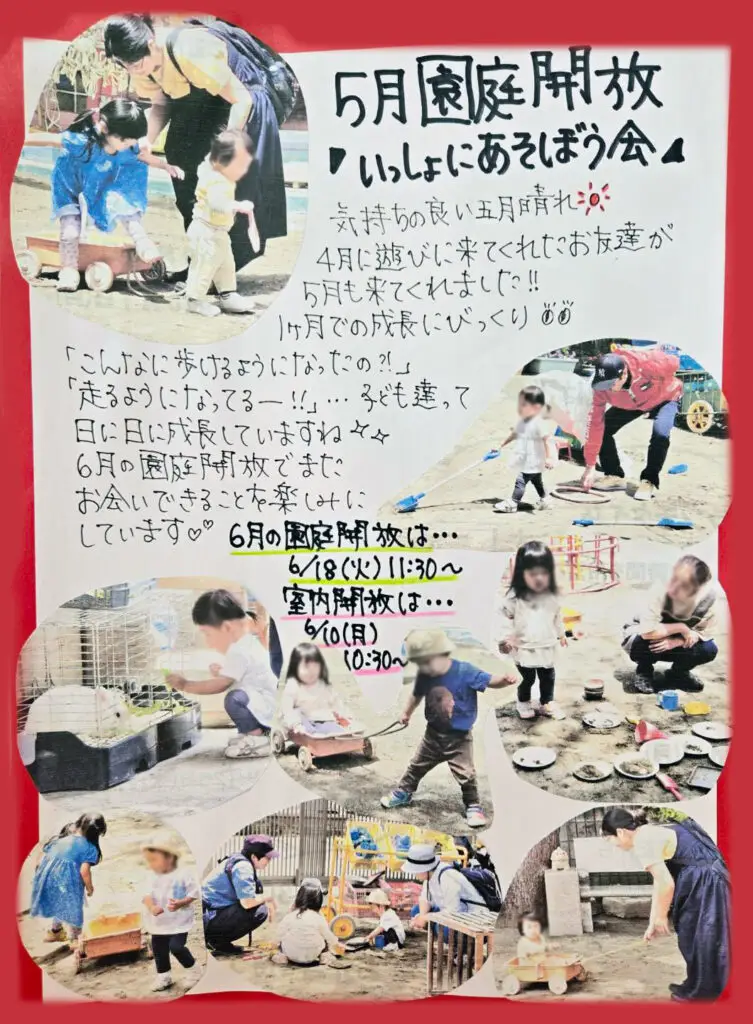 5月園庭開放
いっしょにあそぼう会
気持ちの良い五月晴れ
4月に遊びに来てくれたお友達が
5月も来てくれました!!
1ヶ月での成長にびっくり
「こんなに歩けるようになったの?!」
「走るようになってるー!!」…子ども達って
日に日に成長していますね
6月の園庭開放でまた
お会いできることを楽しみに
しています♡♡
6月の園庭開放は…
6/18(火)11:30~
室内開放は…
6/10(月)
10:30~